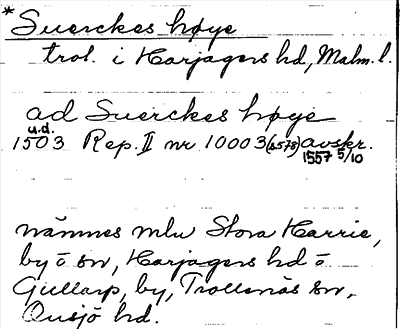 *Suerckes høye
trol. i Harjagers hd, Malm. l.
ad Suerckes høye
u.d.
1503 Rep. II nr 10003 (s 578) avskr.
1557 5/10
nämnes mlu Stora Harrie,
by o sn, Harjagers hd o
Gullarp, by, Trollenäs sn,
Onsjö hd.